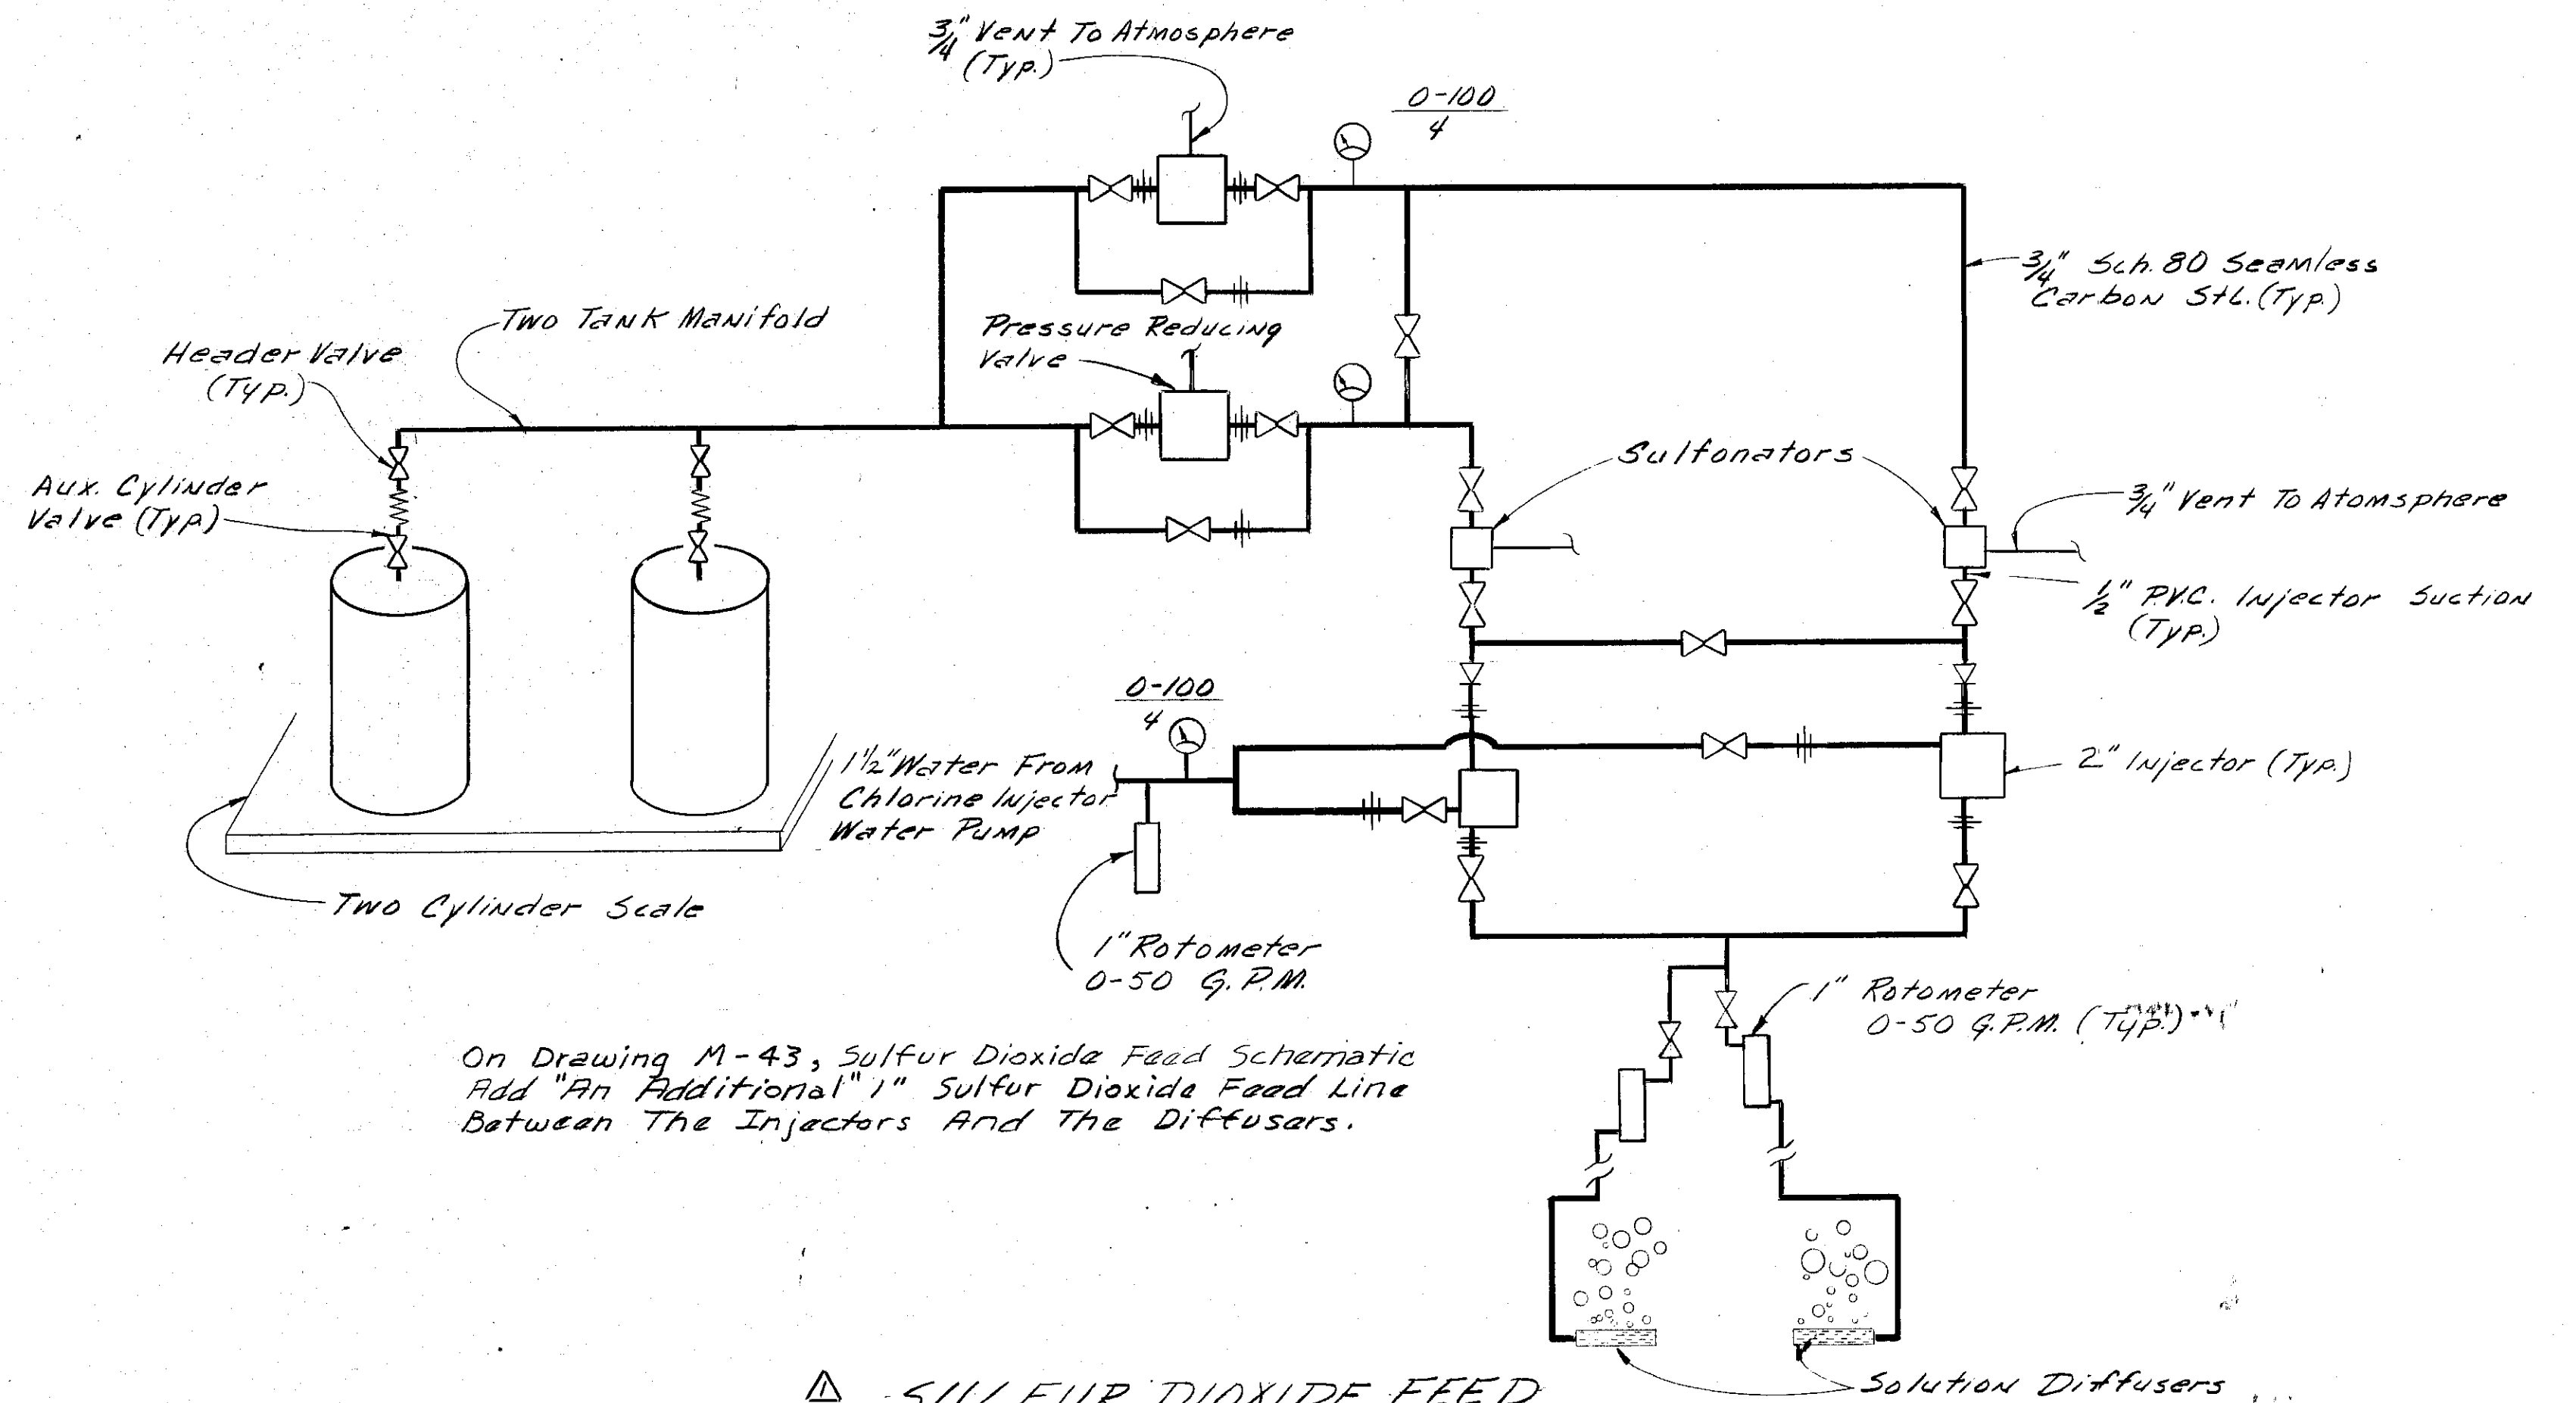 3/4" Vent To Atmosphere
(Typ.)
0-100
4
3/4" Sch. 80 Seamless
Carbon Stl. (Typ.)
Two Tank Manifold
Pressure Reducing
Valve
Header Valve
(Typ.)
Sulfonators
Aux. Cylinder
Valve (Typ.)
3/4" Vent To Atomsphere
1/2" P.V.C. Injector Suction
(Typ.)
0-100
4
1 1/2" Water From
Chlorine Injector
Water Pump
2" Injector (Typ.)
Two Cylinder Scale
1" Rotometer
0-50 G.P.M.
1" Rotometer
0-50 G.P.M. (Typ.)
On Drawing M-43, Sulfur Dioxide Feed Schematic
Add "An Additional" 1" Sulfur Dioxide Feed Line
Between The Injectors And The Diffusers.
Solution Diffusers
1 SULFUR DIOXIDE FEED